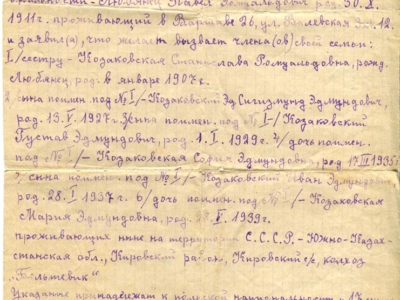 Любянец Павел Ромуальдович род. 30. X.
1911 г. проживающий в Варшаве 26, ул. 12.
и заявил(а), что желает вызвать члена(ов) свой семьи:
1/ сестру - Козаковская Станислава Ромуальдовна, рожд.
Любянец, род. в январе 1907 г.
2/ сына поимен. под № 1/ - Козаковский Эд. Сигизмунд Эдмундович,
род. 13. V. 1927 г. 3/ сына поимен. под № 1/ Козаковский
Густав Эдмундович, род. 1. I. 1929 г. 4/ дочь поимен.
под № 1/ - Козаковская София Эдмундовна, род. 17 III 1935 г.
5/ сына поимен. под № 1/ - Козаковский Иван Эдмундович
род. 28. I 1937 г. 6/ дочь поимен. под № 1/ - Козаковская
Мария Эдмундовна, род. V. 1939 г.
проживающих ныне на территории С.С.С.Р. - Южно-Казах-
станская обл., Кировский район, Кировский с/с, колхоз
„Большевик“
Указание принадлежат к польской национальности